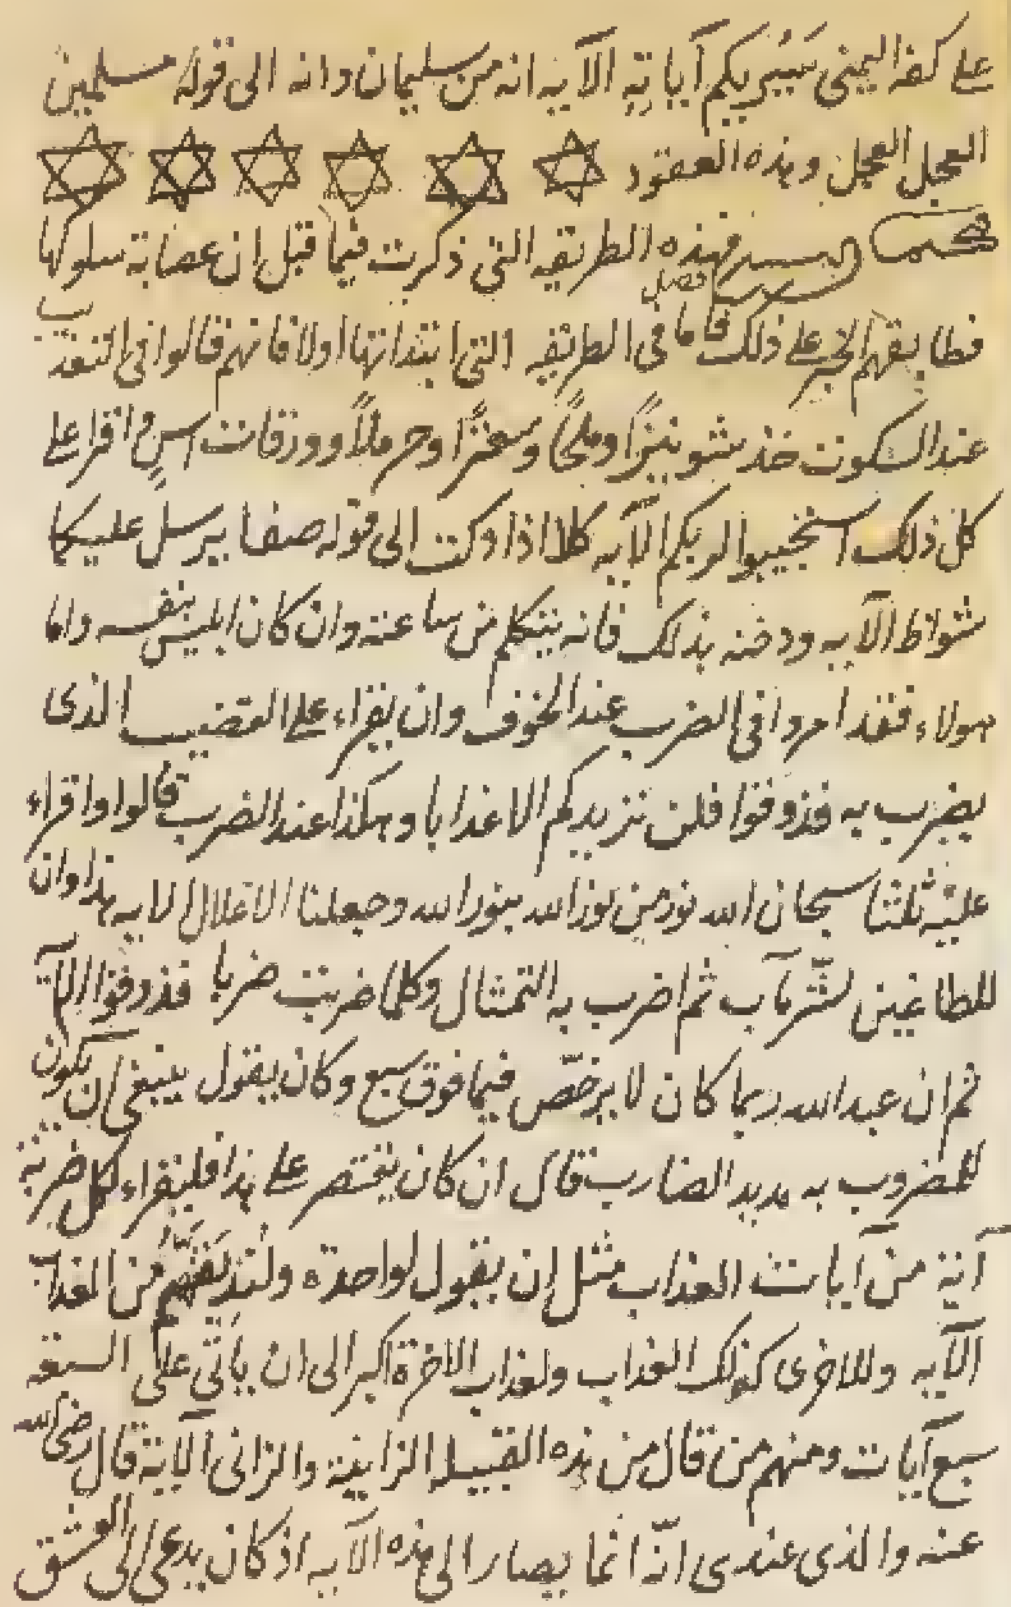 على كفه اليمنى سيريكم آياته الآيه انه من سليمان وانه الى قوله مسلمين
العجل العجل وهذه العقود
فهذه الطريقه التي ذكرت فيما قبل ان عصابة سلوكها
فطابقهم الخبر على ذلك فاما في الطريقه التي ابتدانها اولا فانهم قالوا في التعذيب
فصل
عند السكوت خذ شونيزًا وملحًا وسعترًا وحرملاً وورقات اسٍ واقرا على
كل ذلك استجيبوا لربكم الآيه كلا اذا دكت الى قوله صفا يرسل عليكما
شواظ الآيه ودخنه بذلك فانه يتكلم من ساعته وان كان ابليس بنفسه واما
هولاء فقد امروا في الضرب عند الخوف وان يقراء على القضيب الذى
يضرب به فذوقوا فلن نزيدكم الا عذابا وهكذا عند الضرب قالوا واقراء
عليه ثلثا سبحان الله نور من نور الله بنور الله وجعلنا الاغلال الايه هذا وان
للطاغين لشّر مآب ثم اضرب به التمثال وكلما ضربت ضربا فذوقوا الآية
ثم ان عبد الله ربما كان لا يرخصّ فيما فوق سبع وكان يقول ينبغى ان يكون
للمضروب به يد الضارب قال ان كان يختصر على هذا فليقراء لكل ضربة
آية من آيات العذاب مثل ان يقول لواحدة ولنذيقنّهم من العذاب
الآيه وللاخرى كذلك العذاب ولعذاب الاخرة اكبر الى ان ياتى على السبعه
سبع آيات ومنهم من قال من هذه القبيله الزانية والزانى الآية قال رضى الله
عنه والذى عندى انّ انما يصار الى هذه الآيه اذ كان يدعى الى العشق